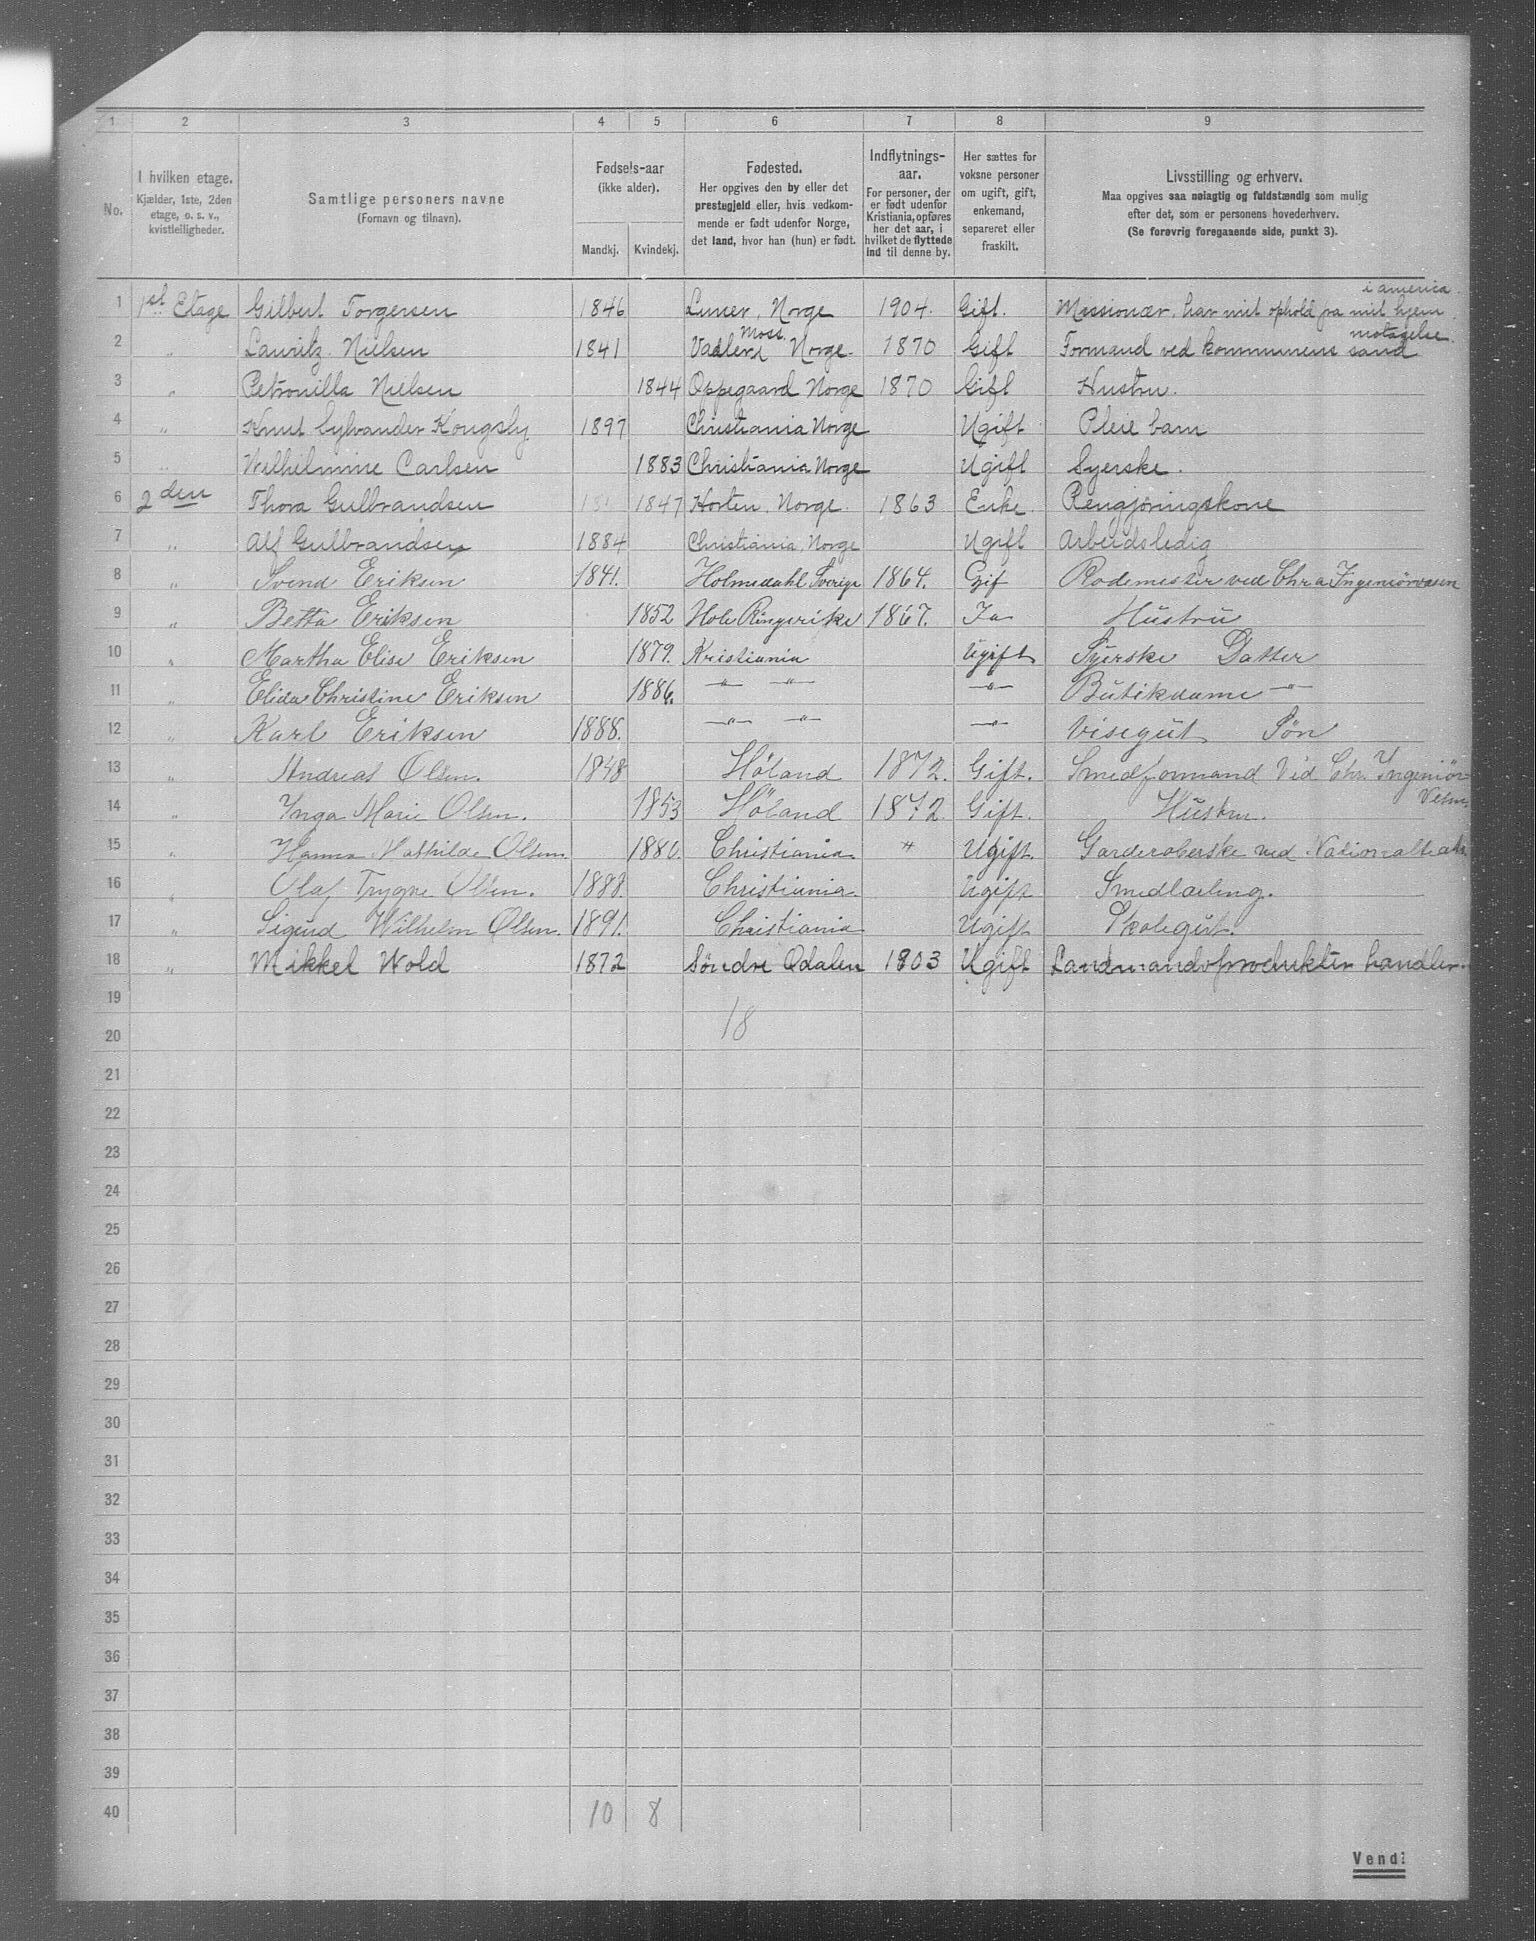 1 2 3 4 5 6 7 8 9
No.
I hvilken etage.
Kjælder, 1ste, 2den
etage, o. s. v.,
kvistleiligheder.
Samtlige personers navne
(Fornavn og tilnavn).
Fødsels-aar
(ikke alder).
Mandkj. Kvindekj.
Fødested.
Her opgives den by eller det
prestegjeld eller, hvis vedkom-
mende er født udenfor Norge,
det land, hvor han (hun) er født.
Indflytnings-
aar.
For personer, der
er født udenfor
Kristiania, opføres
her det aar, i
hvilket de flyttede
ind til denne by.
Her sættes for
voksne personer
om ugift, gift,
enkemand,
separeret eller
fraskilt.
Livsstilling og erhverv.
Maa opgives saa nøiagtig og fuldstændig som mulig
efter det, som er personens hovederhverv.
(Se forøvrig foregaaende side, punkt 3).
i america
1 1st Etage Gilbert Torgersen 1846 Luner, Norge 1904. Gift. Missionær, har mit ophold fra mit hjem
Moss. motagelse
2 " Lauritz Nielsen 1841 Vaaler Norge. 1870 Gift Formand ved kommunens sand
3 " Petronilla Nielsen 1844 Oppegaard Norge 1870 Gift Hustru.
4 " Knut Sylvander Kongsby 1897 Christiania Norge Ugift Pleie barn
5 " Wilhelmine Carlsen 1883 Christiania Norge Ugift Syerske.
6 2den Thora Gulbrandsen 1847 Horten, Norge. 1863 Enke Rengjøringskone
7 " Alf Gulbrandsen 1884 Christiania, Norge Ugift Arbeidsledig
8 " Svend Eriksen 1841. Holmedahl Sverige 1864. Gif Rodemester ved Chra Ingeniørvæsen
9 " Betta Eriksen 1852 Hole Ringerike 1867. Ja Hustru
10 " Martha Elise Eriksen 1879. Kristiania Ugift Syerske Datter
11 " Elida Christine Eriksen 1886. —"— —"— —"— Butikdame —"—
12 " Karl Eriksen 1888. —"— —"— —"— Visegut Søn
13 " Andreas Olsen. 1848 Høland 1872. Gift. Smedformand Ved. Chr. Ingeniør
14 " Inga Marie Olsen. 1853 Høland 1872. Gift. Hustru.
15 " Hanna Mathilde Olsen 1880. Christiania " Ugift Garderoberske ved Nationaltheatr
16 " Olaf Trygve Olsen. 1888. Christiania. Ugift Smedlærling.
17 " Sigurd Wilhelm Olsen. 1891. Christiania Ugift Skolegut.
18 " Mikkel Wold 1872 Søndre Odalen 1903 Ugift Landmandsprodukter handler.
19
18
20
21
22
23
24
25
26
27
28
29
30
31
32
33
34
35
36
37
38
39
40 10 8
Vend!